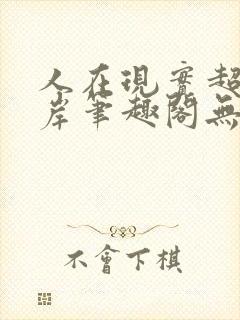 人在現實超
岸筆趣閣無
不會下棋